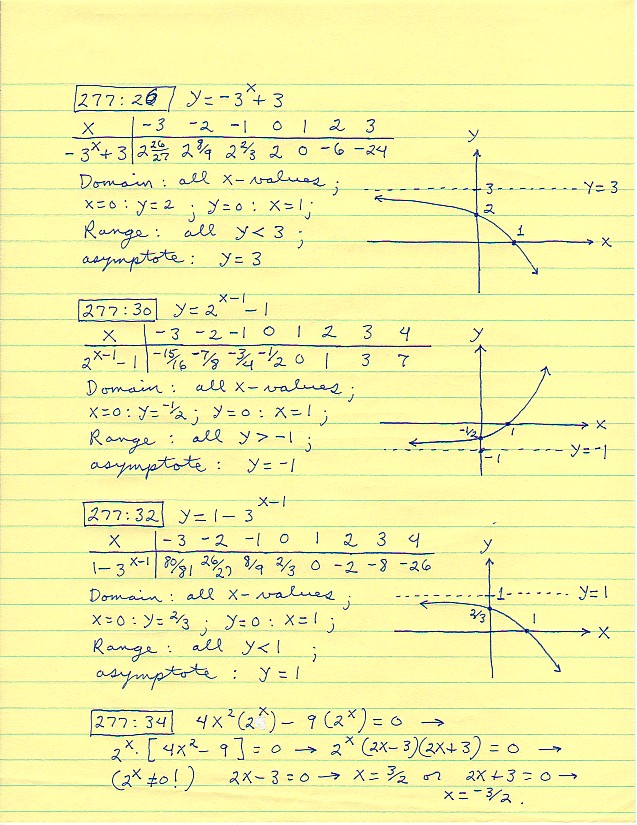 277:26 y = -3^x + 3
x -3 -2 -1 0 1 2 3
-3^x+3 2 26/27 2 8/9 2 2/3 2 0 -6 -24
Domain: all x-values;
x=0: y=2; y=0: x=1;
Range: all y<3;
asymptote: y=3
y
3
y=3
2
1
x
277:30 y = 2^(x-1) - 1
x -3 -2 -1 0 1 2 3 4
2^(x-1) - 1 -15/16 -7/8 -3/4 -1/2 0 1 3 7
Domain: all x-values;
x=0: y=-1/2; y=0: x=1;
Range: all y>-1;
asymptote: y=-1
y
x
-1/2
1
-1
y=-1
277:32 y = 1 - 3^(x-1)
x -3 -2 -1 0 1 2 3 4
1-3^(x-1) 80/81 26/27 8/9 2/3 0 -2 -8 -26
Domain: all x-values;
x=0: y=2/3; y=0: x=1;
Range: all y<1;
asymptote: y=1
y
1
y=1
2/3
1
x
277:34 4x²(2^x) - 9(2^x) = 0 →
2^x·[4x²-9] = 0 → 2^x(2x-3)(2x+3) = 0 →
(2^x≠0!) 2x-3=0 → x=3/2 or 2x+3=0 →
x=-3/2.